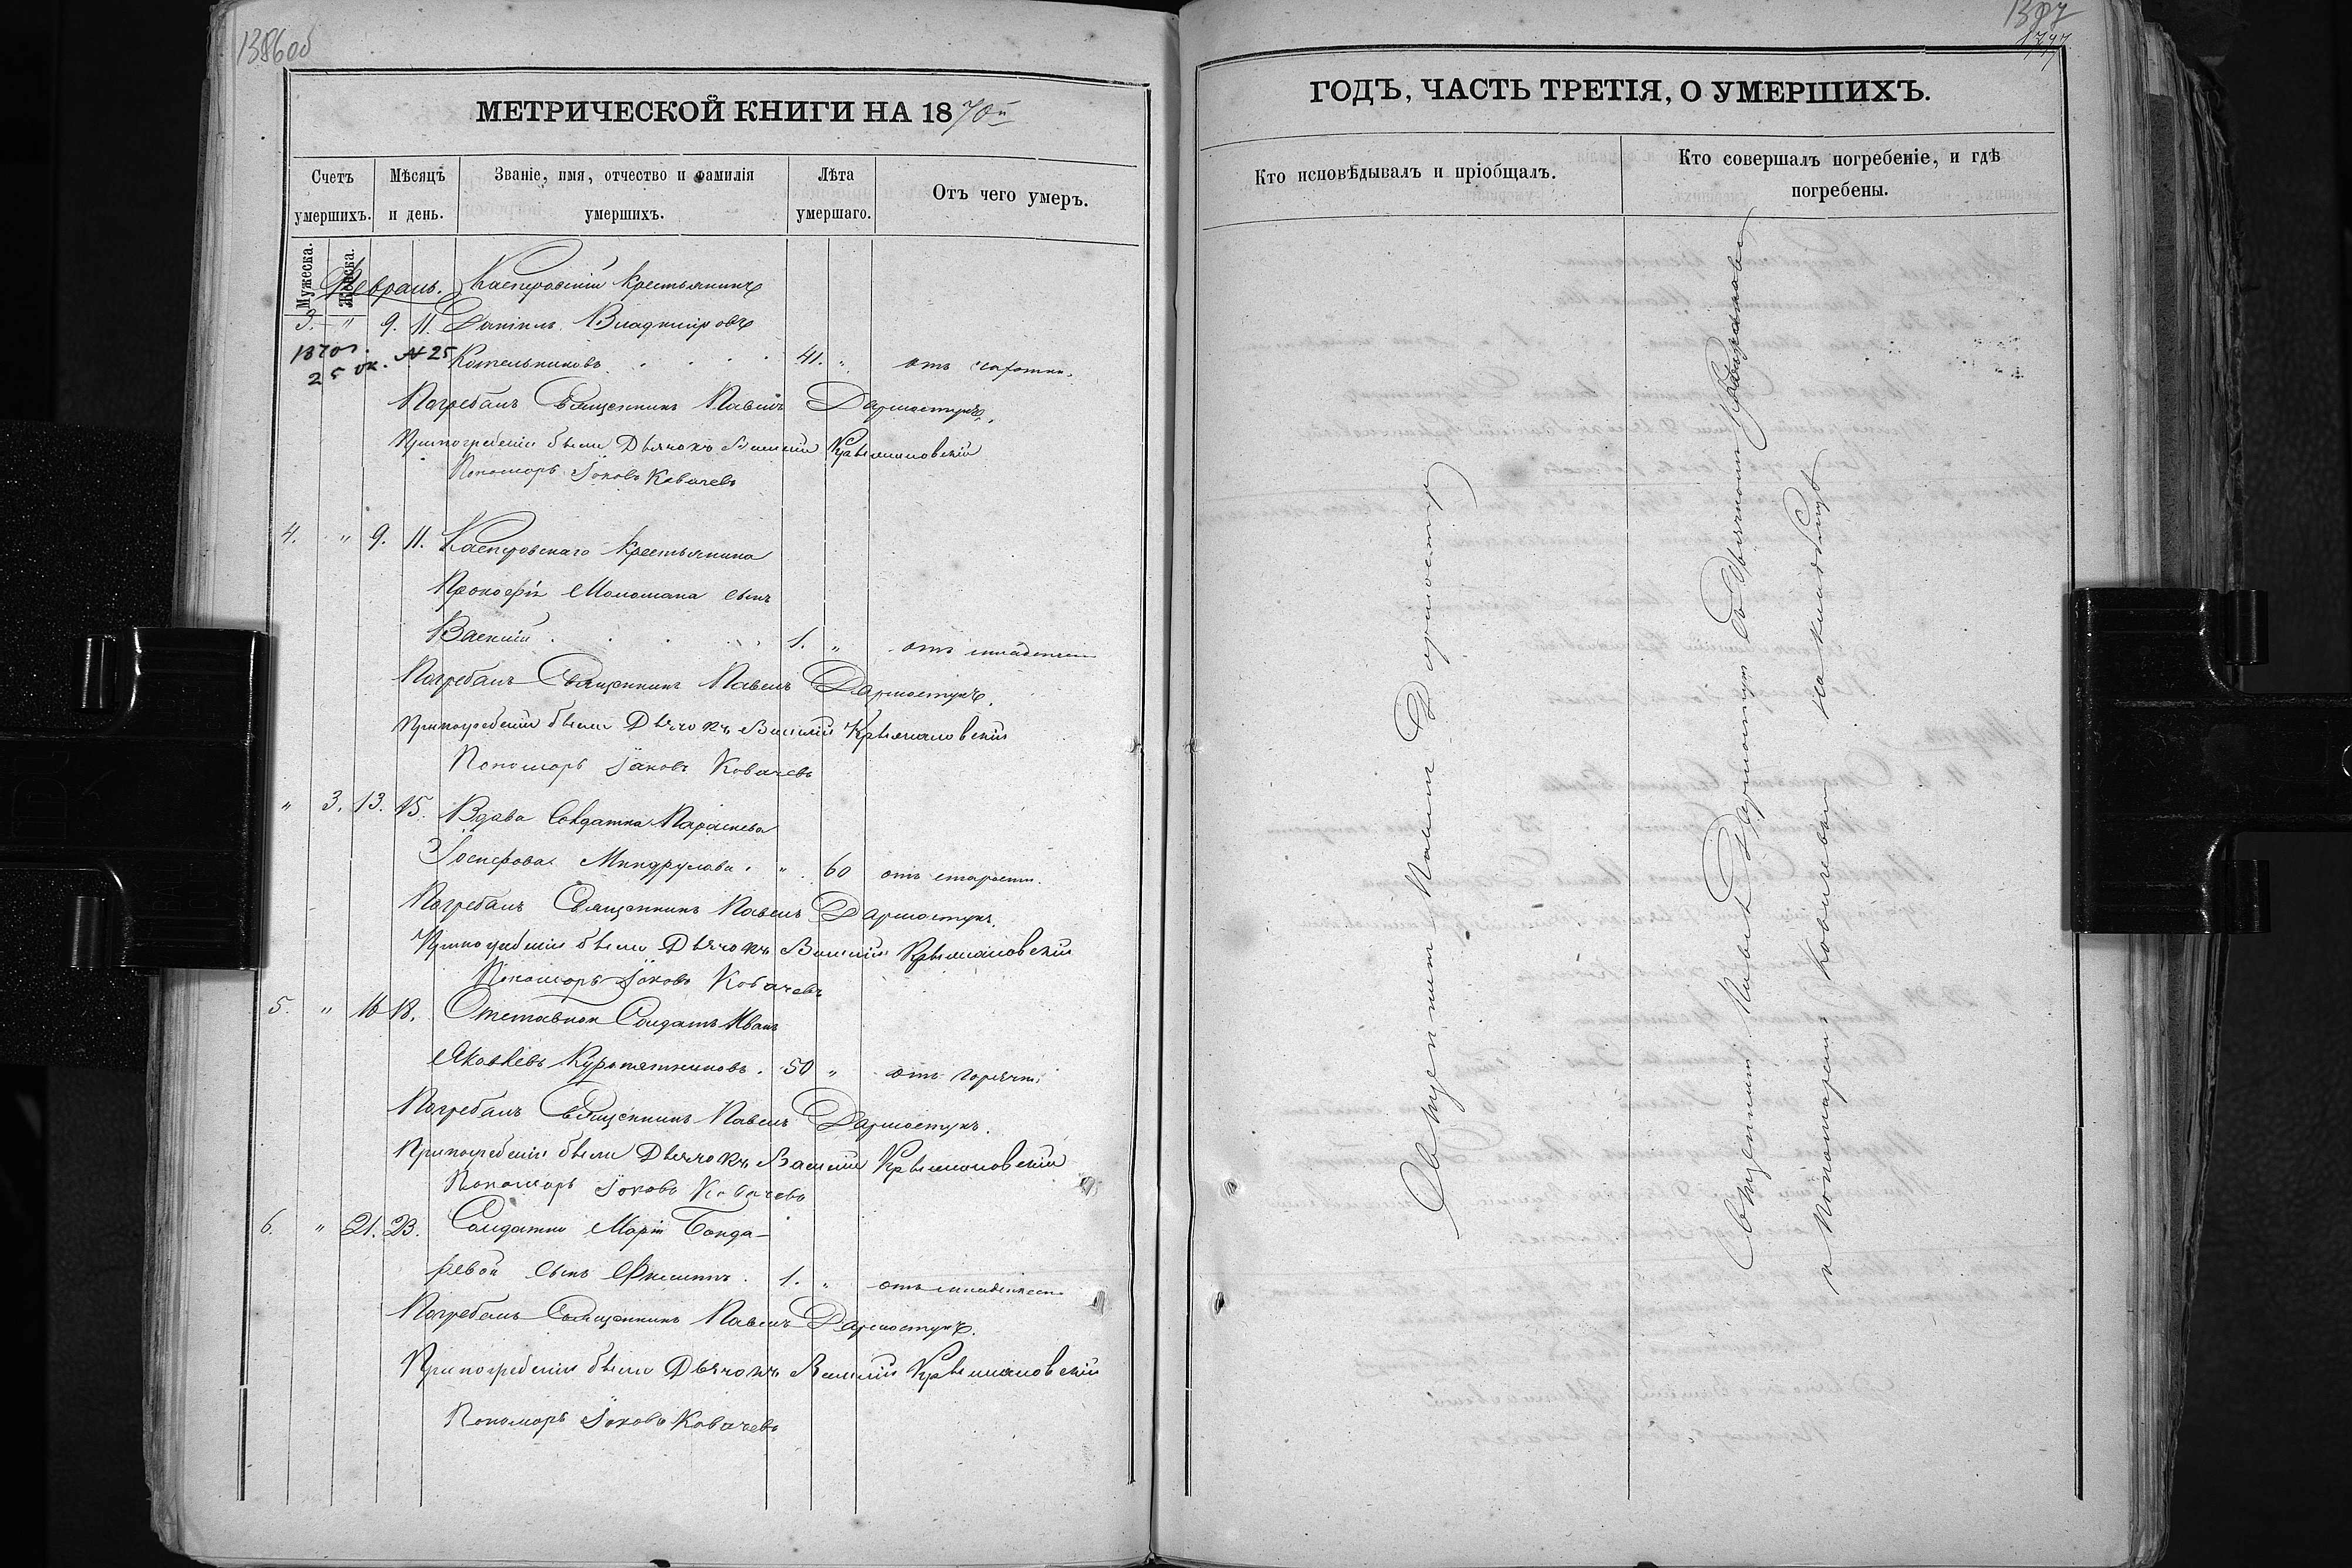 1386об
МЕТРИЧЕСКОЙ КНИГИ НА 1870й
Счетъ умершихъ.
Мѣсяцъ и день.
Званіе, имя, отчество и фамилія умершихъ.
Лѣта умершаго.
Отъ чего умеръ.
Мужеска.
Женска.
Февраль. Касперовскій Крестьянинъ
3. " 9. 11. Даніилъ Владиміровъ
1870г. 25 ок. N 25
Котельниковъ 41. " отъ чахотки.
Погребалъ Священникъ Павелъ Дармостукъ.
При погребеніи были Дьячокъ Василій Крыжановскій
Пономарь Іаковъ Ковачевъ
4. " 9. 11. Касперовскаго Крестьянина
Прокофія сынъ
Василій 1. " отъ младенчест
Погребалъ Священникъ Павелъ Дармостукъ.
При погребеніи были Дьячокъ Василій Крыжановскій
Пономарь Іаковъ Ковачевъ
" 3. 13. 15. Вдова Солдатка Параскева
Іосифова Миндрулова. " 60 отъ старости.
Погребалъ Священникъ Павелъ Дармостукъ.
При погребеніи были Дьячокъ Василій Крыжановскій
Пономарь Іаковъ Ковачевъ
5. " 16 18. Отставной Солдатъ Иванъ
Яковлевъ Куропятниковъ. 50 " отъ горячки
Погребалъ Священникъ Павелъ Дармостукъ.
При погребеніи были Дьячокъ Василій Крыжановскій
Пономарь Іаковъ Ковачевъ
6. " 21. 23. Солдатки Маріи Бонда-
ревой сынъ Филиппъ. 1. " отъ младенчест
Погребалъ Священникъ Павелъ Дармостукъ.
При погребеніи были Дьячокъ Василій Крыжановскій
Пономарь Іаковъ Ковачевъ
1387
ГОДЪ, ЧАСТЬ ТРЕТІЯ, О УМЕРШИХЪ.
Кто исповѣдывалъ и пріобщалъ.
Кто совершалъ погребеніе, и гдѣ погребены.
Священникъ Павелъ Дармостукъ
Священникъ Павелъ Дармостукъ съ Дьячкомъ Крыжановскимъ
и Пономаремъ Ковачевымъ на кладбищѣ